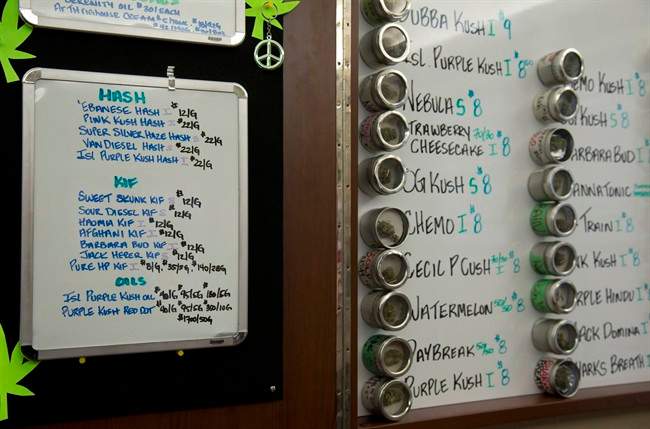 SERENITY OIL $30/EACH
HASH
LEBANESE HASH I $12/G
PINK KUSH HASH I $22/G
SUPER SILVER HAZE HASH S $22/G
VAN DIESEL HASH S $22/G
ISL PURPLE KUSH HASH I $22/G
KIF
SWEET SKUNK KIF S $12/G
SOUR DIESEL KIF S $12/G
HAOMIA KIF I $12/G
AFGHANI KIF I $12/G
BARBARA BUD KIF I $12/G
JACK HERER KIF S $12/G
PURE HP KIF I $8/G, $35/5G, $140/28G
OILS
ISL PURPLE KUSH OIL $40/G $95/5G $180/5G
PURPLE KUSH RED DOT $40/G $95/5G $350/10G
$1700/50G
BUBBA KUSH I $9
ISL. PURPLE KUSH I $8
NEBULA S $8
STRAWBERRY
CHEESECAKE 70/30 I $8
OG KUSH S $8
CHEMO I $8
CECIL P CUSH 70/30 I $8
WATERMELON 50/50 $8
DAYBREAK 50/50 $8
PURPLE KUSH I $8
EMO KUSH I $8
KUSH S $8
BARBARA BUD I $8
ANNATONIC
TRAIN I $8
K KUSH I $8
RPLE HINDU I $8
ACK DOMINA I
HARKS BREATH I